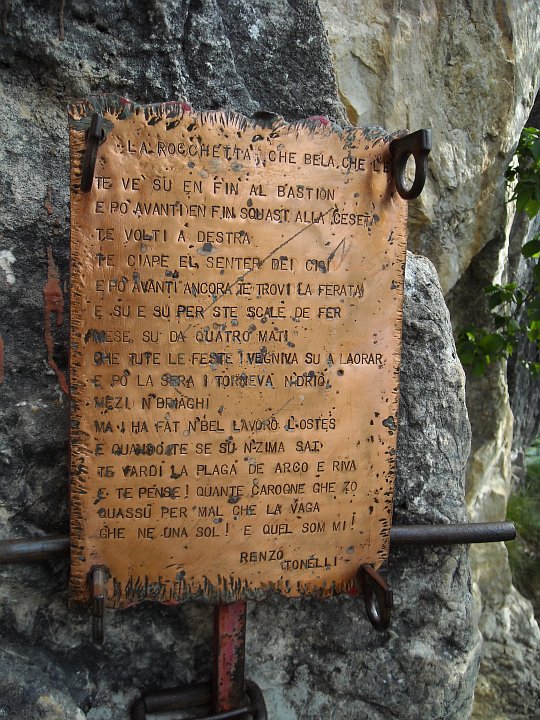 "LA ROCCHETTA", CHE BELA, CHE L'È
TE VE' SU EN FIN AL BASTION
E PO' AVANTI EN FIN SQUASI ALLA CESETA
TE VOLTI A DESTRA
TE CIAPE EL SENTER DEI
E PO' AVANTI ANCORA TE TROVI LA FERATA
E SU E SU PER STE SCALE DE FER
MESE SU DA QUATRO MATI
CHE TUTE LE FESTE I VEGNIVA SU A LAORAR
E PO LA SERA I TORNEVA N'DRIO
MEZI N'BRIAGHI
MA I HA FAT N'BEL LAVORO L'OSTES
E QUANDO TE SE SU N'ZIMA SAI
TE VARDI LA PLAGA DE ARCO E RIVA
E TE PENSE! QUANTE CAROGNE GHE ZO
QUASSÙ PER MAL CHE LA VAGA
GHE NE UNA SOL! E QUEL SOM MI!
RENZO
TONELLI